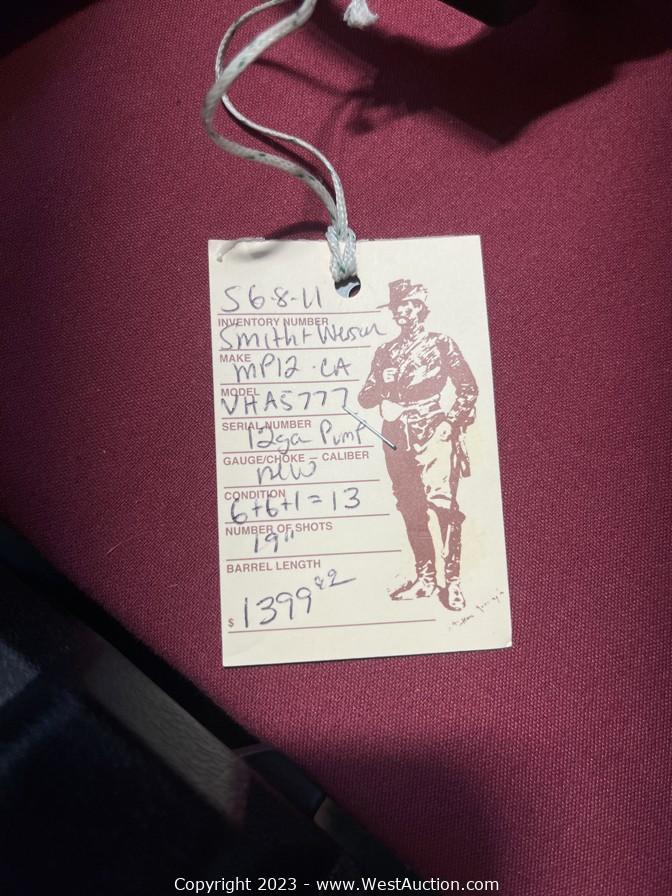 S6-8-11
INVENTORY NUMBER
Smith + Wesson
MAKE
MP12 - CA
MODEL
VHA5777
SERIAL NUMBER
12ga Pump
GAUGE/CHOKE – CALIBER
new
CONDITION
6+6+1=13
NUMBER OF SHOTS
19"
BARREL LENGTH
$ 1399
Copyright 2023 - www.WestAuction.com